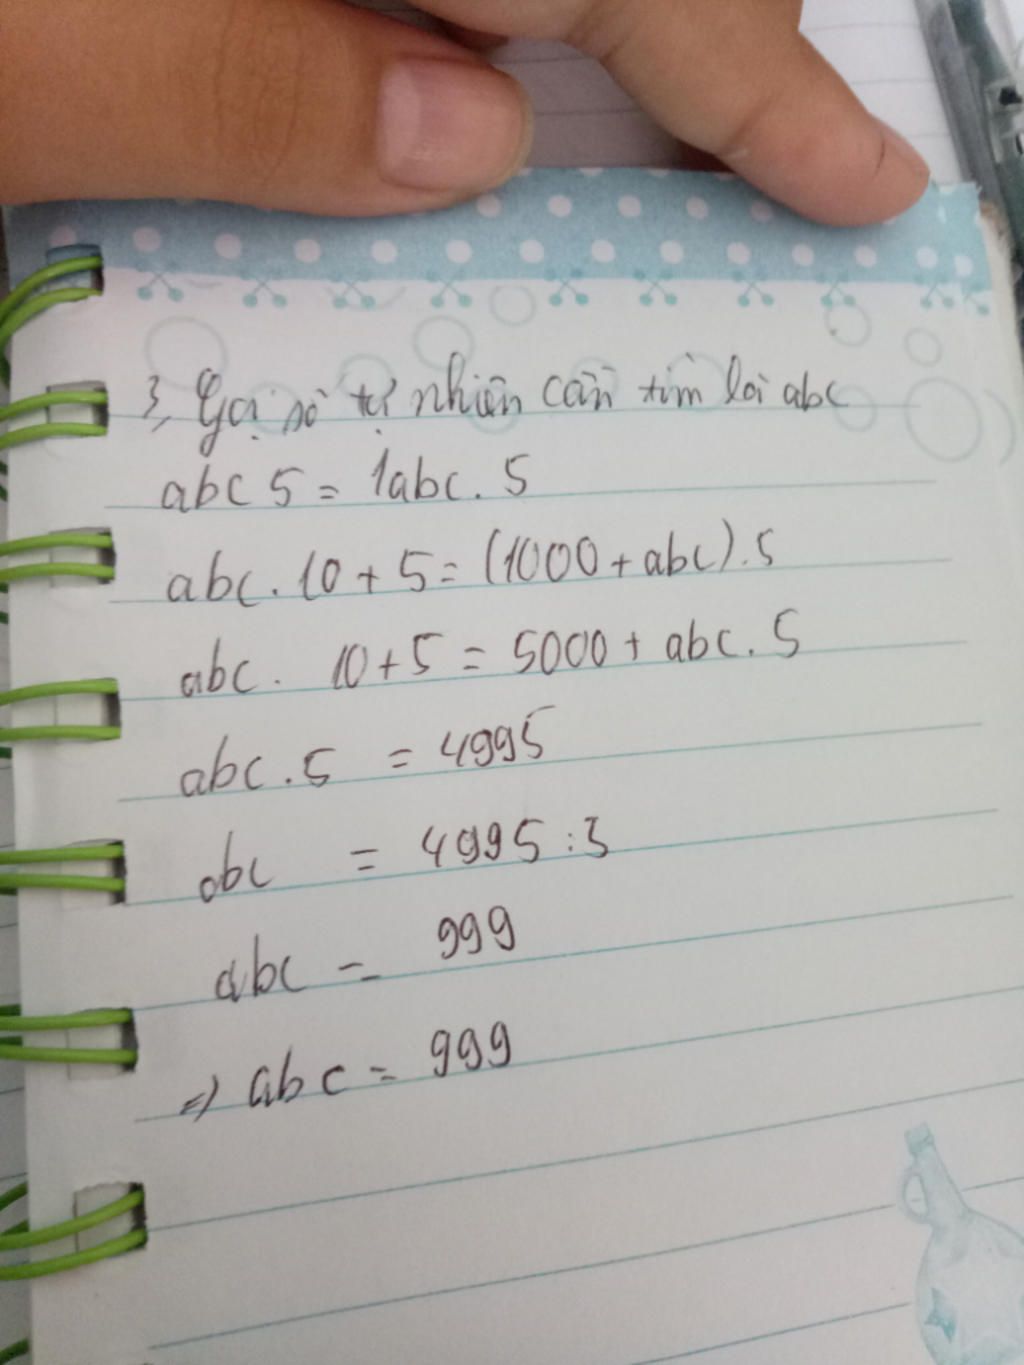 3, Gọi số tự nhiên cần tìm là abc
abc 5 = 1abc. 5
abc. 10 + 5 = (1000 + abc). 5
abc. 10 + 5 = 5000 + abc. 5
abc. 5 = 4995
abc = 4995 : 3
abc = 999
=> abc = 999